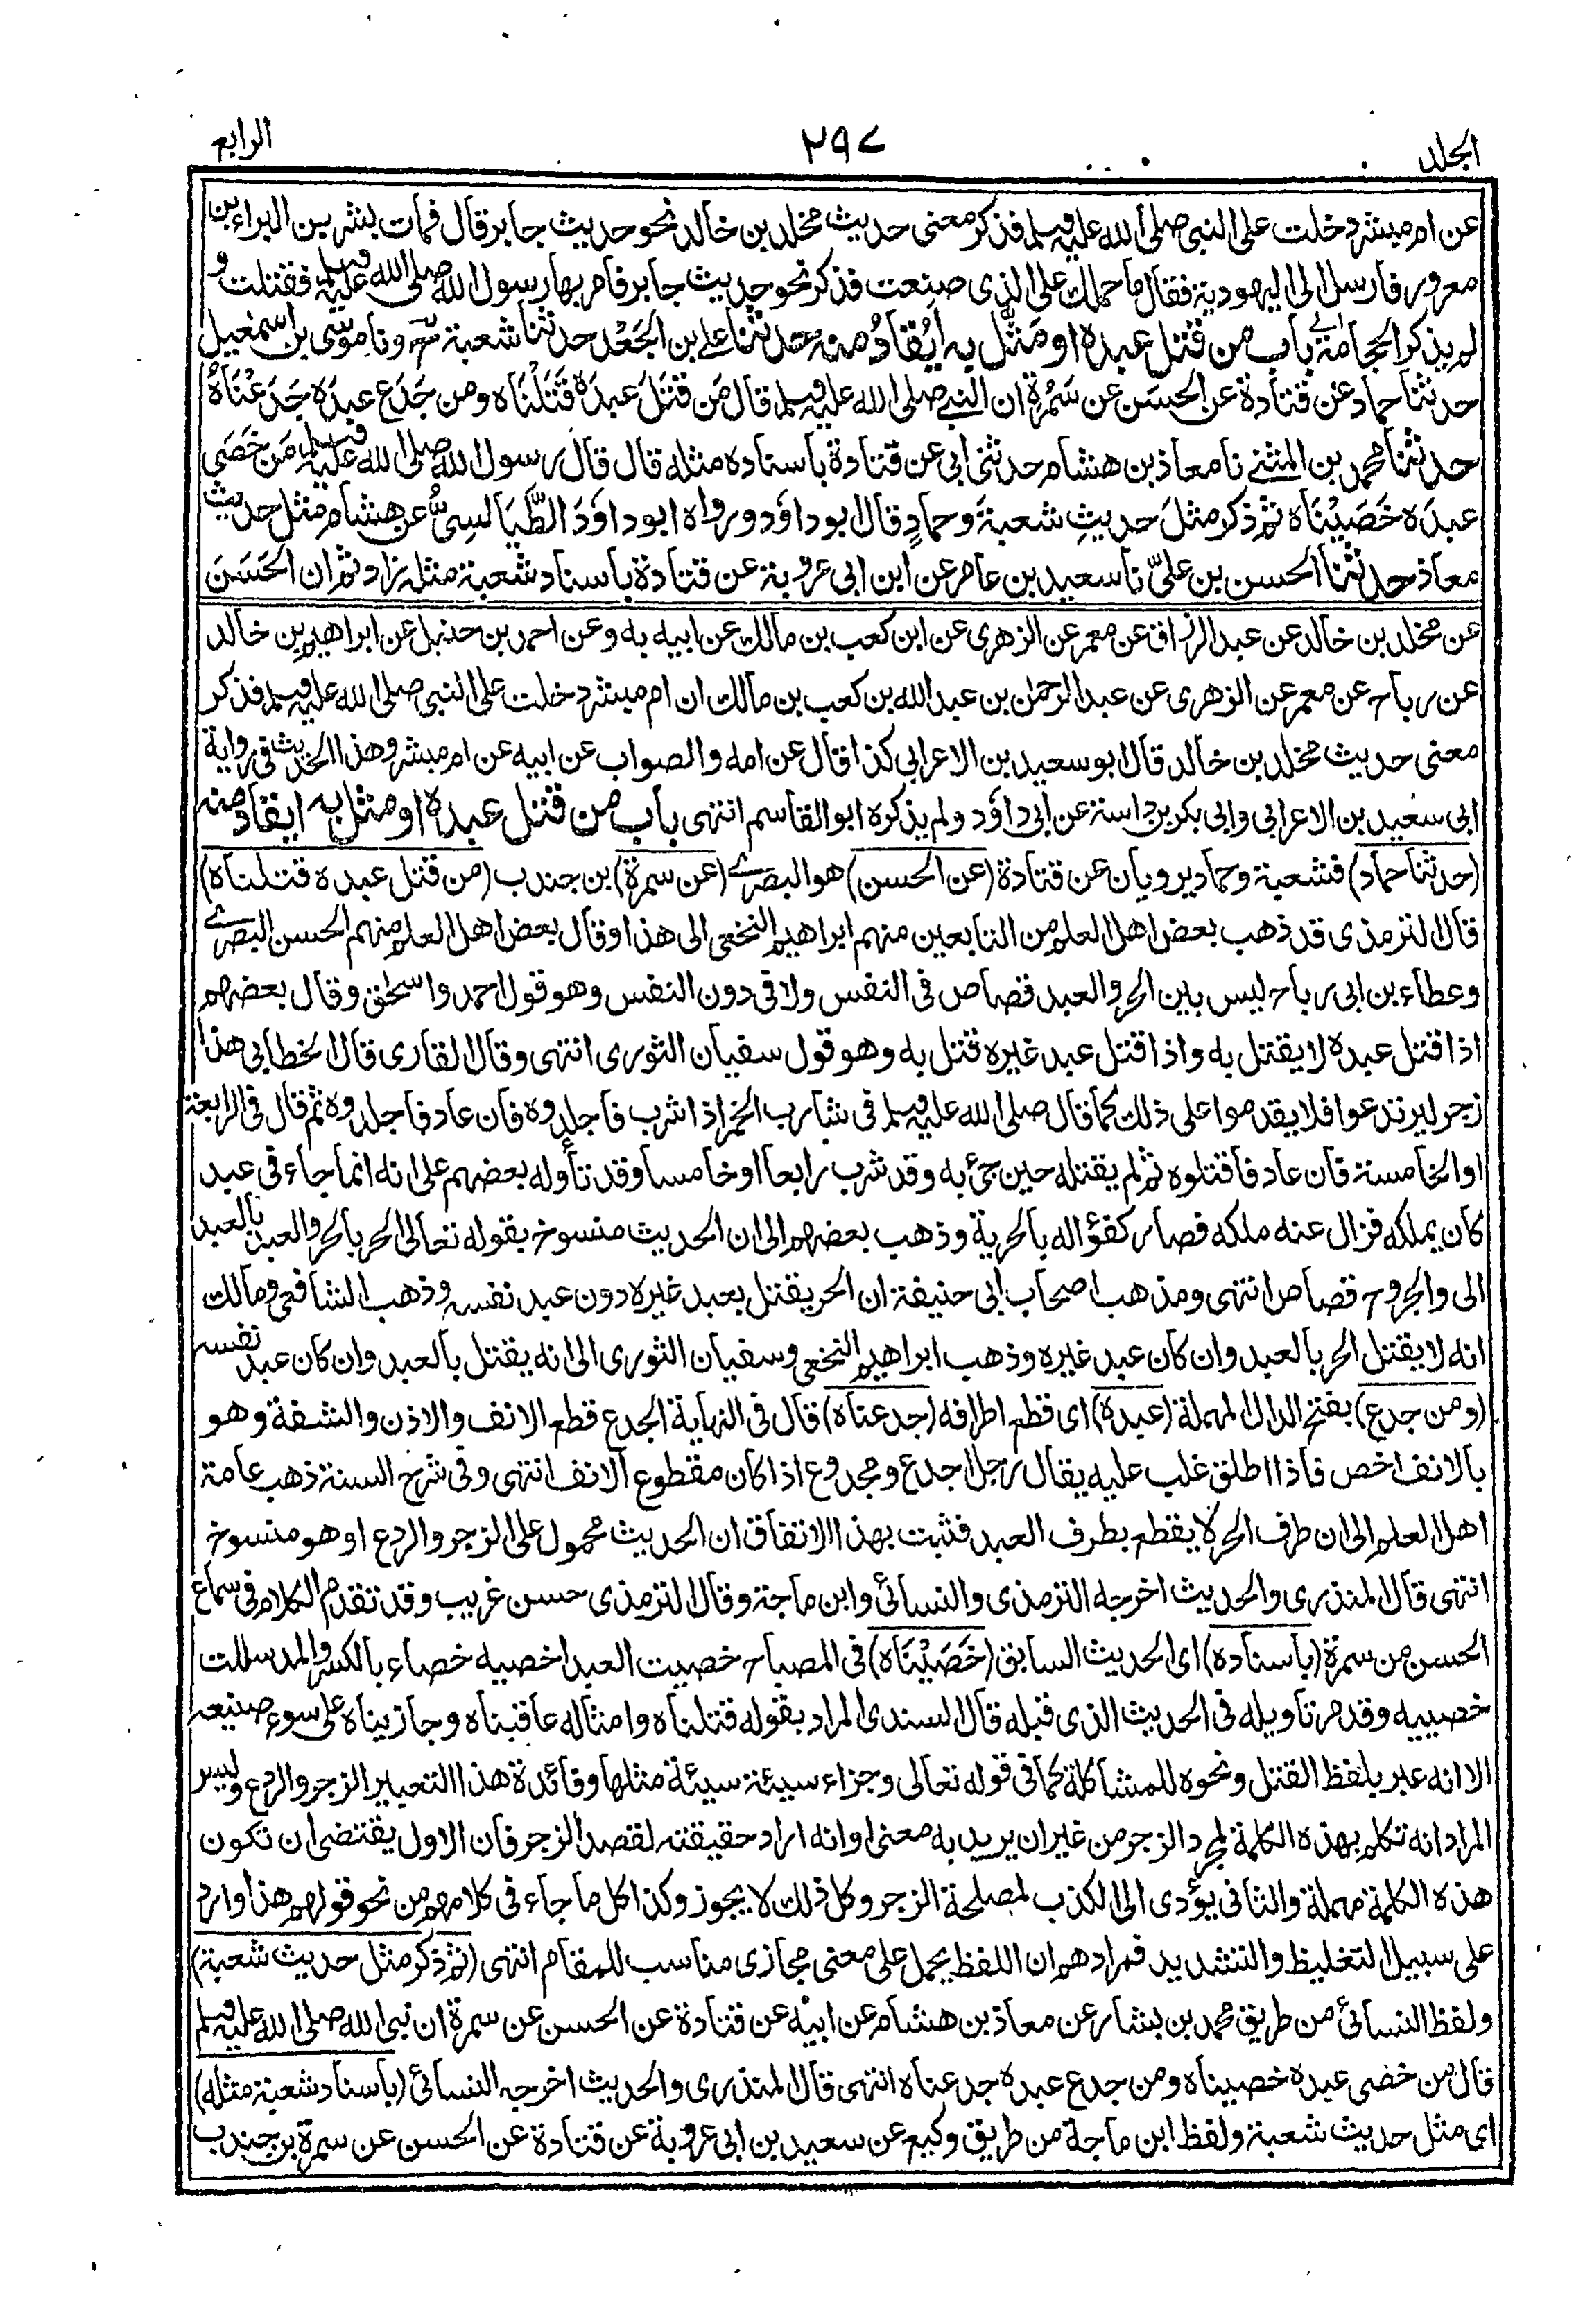 الجلد
٢٩٧
الرابع
عن ام مبشر دخلت على النبي صلى الله عليه وسلم فذكر معنى حديث مخلد بن خالد نحو حديث جابر قال فمات بشر بن البراء بن
معرور فارسل الى اليهودية فقال ما حملك على الذى صنعت فذكر نحو حديث جابر فامر بها رسول الله صلى الله عليه وسلم فقتلت و
لم يذكر الحجامة باب من قتل عبده او مَثَّل به ايُقَادُ منه حدثنا علي بن الجَعْد حدثنا شعبة ح ونا موسى بن اسمعيل
حدثنا حماد عن قتادة عن الحسَن عن سَمُرة ان النبي صلى الله عليه وسلم قال مَن قتَلَ عبدَه قَتَلْناه ومن جَدَع عبدَه جَدَعْنَاهُ
حدثنا محمد بن المثنى نا معاذ بن هشام حدثنى ابى عن قتادة باسناده مثله قال قال رسول الله صلى الله عليه وسلم مَن خَصَى
عبدَه خَصَيْنَاه ثم ذكر مثلَ حديثِ شعبةَ وحمادٍ قال ابو داؤد ورواه ابو داوَدَ الطَّيَالسِىُّ عن هشام مثل حديث
معاذ حدثنا الحسن بن علىّ نا سعيد بن عامر عن ابن ابى عروبة عن قتادة باسناد شعبة مثله زاد ثم ان الحَسَنَ
عن مخلد بن خالد عن عبد الرزاق عن معمر عن الزهرى عن ابن كعب بن مالك عن ابيه به وعن احمد بن حنبل عن ابراهيم بن خالد
عن رباح عن معمر عن الزهرى عن عبد الرحمٰن بن عبد الله بن كعب بن مالك ان ام مبشر دخلت على النبي صلى الله عليه وسلم فذكر
معنى حديث مخلد بن خالد قال ابو سعيد بن الاعرابى كذا قال عن امه والصواب عن ابيه عن ام مبشر وهذا الحديث فى رواية
ابى سعيد بن الاعرابى وابى بكر بن داسة عن ابى داؤد ولم يذكره ابو القاسم انتهى باب من قتل عبده او مثل به ايقاد منه
(حدثنا حماد) فشعبة وحماد يرويان عن قتادة (عن الحسن) هو البصرى (عن سمرة) بن جندب (من قتل عبده قتلناه)
قال الترمذى قد ذهب بعض اهل العلم من التابعين منهم ابراهيم النخعى الى هذا وقال بعض اهل العلم منهم الحسن البصرى
وعطاء بن ابى رباح ليس بين الحر والعبد قصاص فى النفس ولا فى دون النفس وهو قول احمد واسحٰق وقال بعضهم
اذا قتل عبده لا يقتل به واذا قتل عبد غيره قتل به وهو قول سفيان الثورى انتهى وقال القارى قال الخطابى هذا
زجر ليرتدعوا فلا يقدموا على ذلك كما قال صلى الله عليه وسلم فى شارب الخمر اذا شرب فاجلدوه فان عاد فاجلدوه ثم قال فى الرابعة
او الخامسة فان عاد فاقتلوه ثم لم يقتله حين جئ به وقد شرب رابعا او خامسا وقد تأوله بعضهم على انه انما جاء فى عبد
كان يملكه فزال عنه ملكه فصار كفؤا له بالحرية وذهب بعضهم الى ان الحديث منسوخ بقوله تعالى الحر بالحر والعبد بالعبد
الى والجروح قصاص انتهى ومذهب اصحاب ابى حنيفة ان الحر يقتل بعبد غيره دون عبد نفسه وذهب الشافعى ومالك
انه لا يقتل الحر بالعبد وان كان عبد غيره وذهب ابراهيم النخعى وسفيان الثورى الى انه يقتل بالعبد وان كان عبد نفسه
(ومن جدع) بفتح الدال المهملة (عبده) اى قطع اطرافه (جدعناه) قال فى النهاية الجدع قطع الانف والاذن والشفة وهو
بالانف اخص فاذا اطلق غلب عليه يقال رجل اجدع ومجدوع اذا كان مقطوع الانف انتهى وفى شرح السنة ذهب عامة
اهل العلم الى ان طرف الحر لا يقطع بطرف العبد فثبت بهذا الاتفاق ان الحديث محمول على الزجر والردع او هو منسوخ
انتهى قال المنذرى والحديث اخرجه الترمذى والنسائى وابن ماجة وقال الترمذى حسن غريب وقد تقدم الكلام فى سماع
الحسن من سمرة (باسناده) اى الحديث السابق (خَصَيْنَاه) فى المصباح خصيت العبد اخصيه خصاء بالكسر والمد سللت
خصييه وقد مر تاويله فى الحديث الذى قبله قال السندى المراد بقوله قتلناه وامثاله عاقبناه وجازيناه على سوء صنيعه
الا انه عبر بلفظ القتل ونحوه للمشاكلة كما فى قوله تعالى وجزاء سيئة سيئة مثلها وفائدة هذا التعبير الزجر والردع وليس
المراد انه تكلم بهذه الكلمة لمجرد الزجر من غير ان يريد به معنى او انه اراد حقيقته لقصد الزجر فان الاول يقتضى ان تكون
هذه الكلمة مهملة والثانى يؤدى الى الكذب لمصلحة الزجر وكل ذلك لا يجوز وكذا كل ما جاء فى كلامهم من نحو قولهم هذا وارد
على سبيل التغليظ والتشديد فمرادهم ان اللفظ يحمل على معنى مجازى مناسب للمقام انتهى (ثم ذكر مثل حديث شعبة)
ولفظ النسائى من طريق محمد بن بشار عن معاذ بن هشام عن ابيه عن قتادة عن الحسن عن سمرة ان نبى الله صلى الله عليه وسلم
قال من خصى عبده خصيناه ومن جدع عبده جدعناه انتهى قال المنذرى والحديث اخرجه النسائى (باسناد شعبة مثله)
اى مثل حديث شعبة ولفظ ابن ماجة من طريق وكيع عن سعيد بن ابى عروبة عن قتادة عن الحسن عن سمرة بن جندب